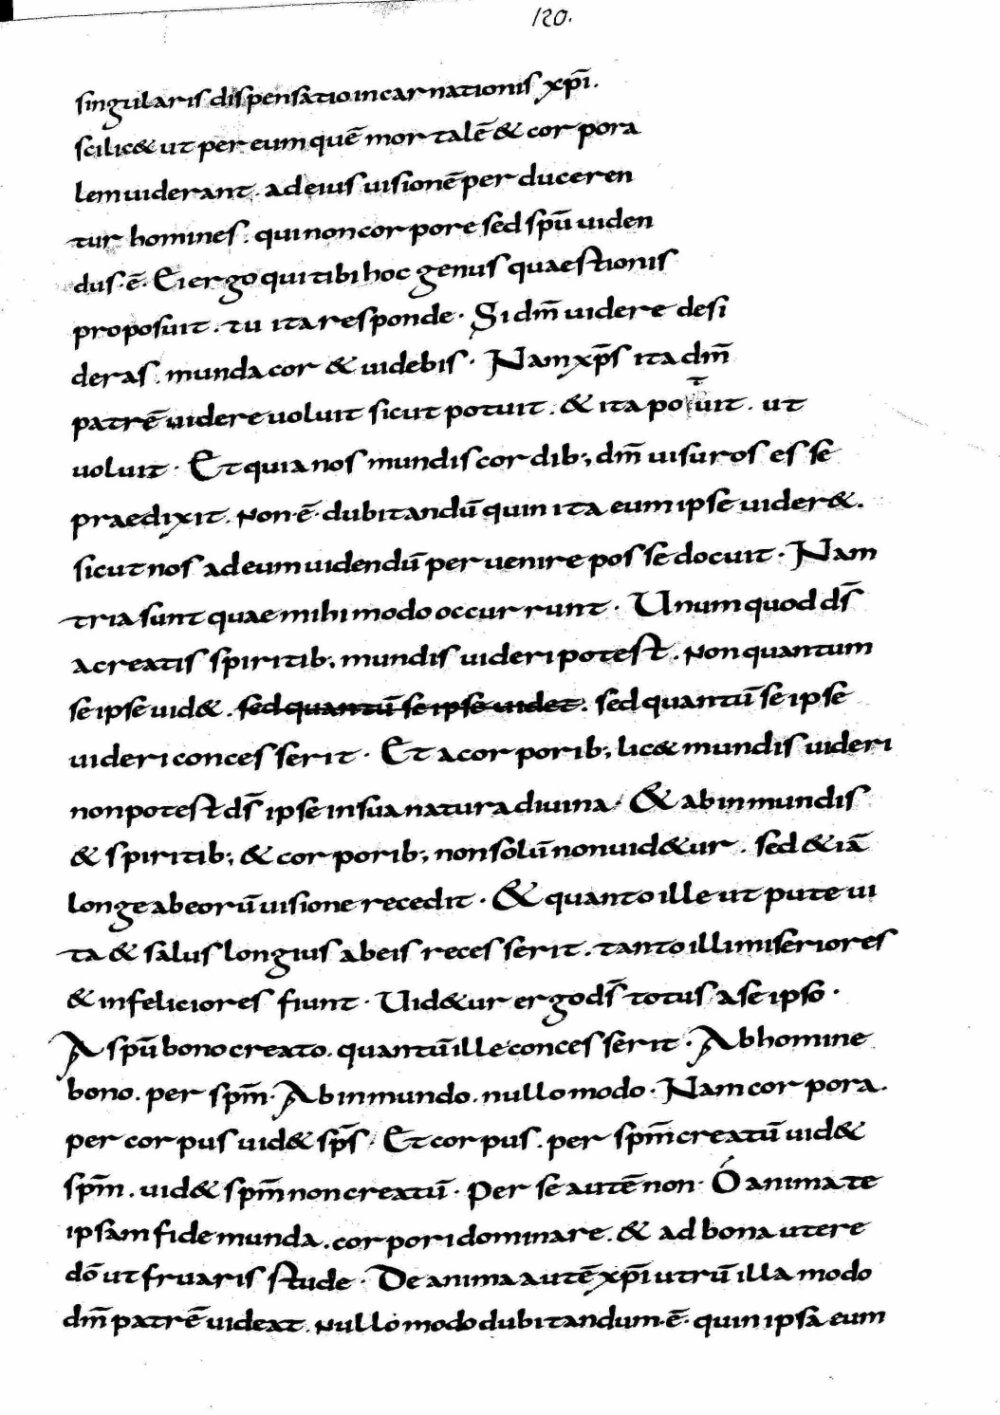 120.
singularis dispensatio incarnationis xp̄i.
scilic& ut per eum quē mortalē & corpora
lem uiderant. ad eius uisionē perduceren
tur homines. qui non corpore sed sp̄u uiden
dus·ē· Ei ergo qui tibi hoc genus quaestionis
proposuit. tu ita responde· Si dm̄ uidere desi
deras. munda cor & uidebis· Nam xp̄s ita dm̄
patrē uidere uoluit sicut potuit. & ita potuit. ut
uoluit· Et quia nos mundis cordib; dm̄ uisuros esse
praedixit. Non·ē· dubitandū quin ita eum ipse uider&.
sicut nos ad eum uidendū peruenire posse docuit· Nam
tria sunt quae mihi modo occurrunt· Unum quod ds̄
a creatis spiritib; mundis uideri potest. Non quantum
se ipse uid&. sed quantū se ipse uidet. sed quantū se ipse
uideri concesserit· Et a corporib; lic& mundis uideri
non potest ds̄ ipse in sua natura diuina/ & ab inmundis
& spiritib; & corporib; non solū non uid&ur. sed &iā
longe ab eorū uisione recedit· & quanto ille ut pute ui
ta & salus longius ab eis recesserit. tanto illi miseriores
& infeliciores fiunt· Uid&ur ergo ds̄ totus a se ipso·
A sp̄u bono creato. quantū ille concesserit· Ab homine
bono. per spm̄· Ab inmundo. nullo modo· Nam corpora.
per corpus uid& sps̄/ Et corpus. per spm̄ creatū uid&
spm̄. uid& spm̄ non creatū· Per se autē non· Ó anima te
ipsam fide munda. corpori dominare. & ad bona utere
dō ut fruaris stude· De anima autē xp̄i utrū illa modo
dm̄ patrē uideat. Nullo modo dubitandum·ē· quin ipsa eum